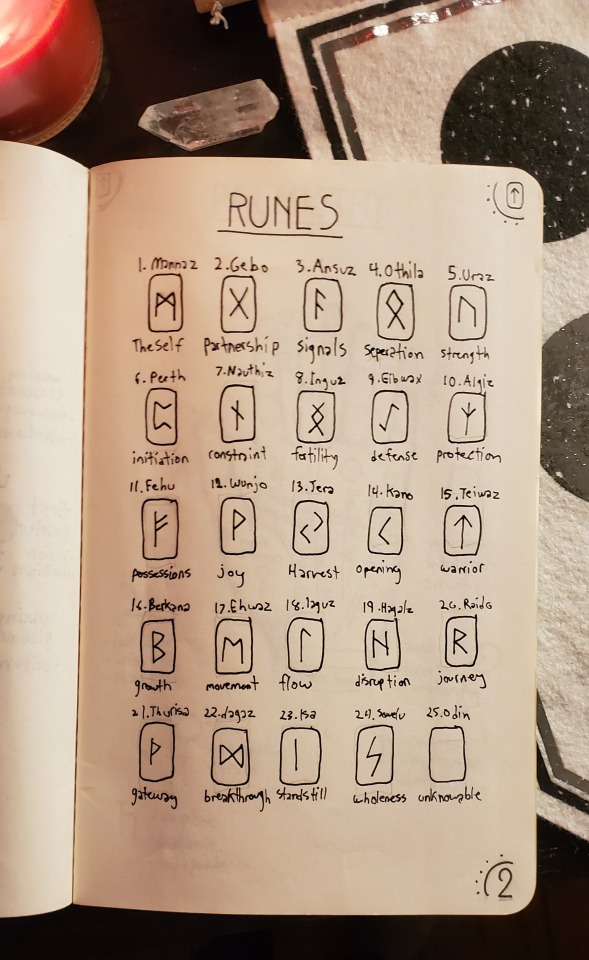 RUNES
1. Mannaz 2. Gebo 3. Ansuz 4. Othila 5. Uraz
ᛗ ᚷ ᚨ ᛟ ᚢ
The Self Partnership Signals Seperation strength
6. Perth 7. Nauthiz 8. Inguz 9. Eihwax 10. Algiz
ᛈ ᚾ ᛝ ᛇ ᛉ
initiation constraint fertility defense protection
11. Fehu 12. Wunjo 13. Jera 14. Kano 15. Teiwaz
ᚠ ᚹ ᛃ ᚲ ᛏ
possessions joy Harvest opening warrior
16. Berkana 17. Ehwaz 18. laguz 19. Hagalz 20. Raido
ᛒ ᛖ ᛚ ᚺ ᚱ
growth movement flow disruption journey
21. Thurisa 22. dagaz 23. Isa 24. Sowelu 25. Odin
ᚦ ᛞ ᛁ ᛋ
gateway breakthrough standstill wholeness unknowable
2